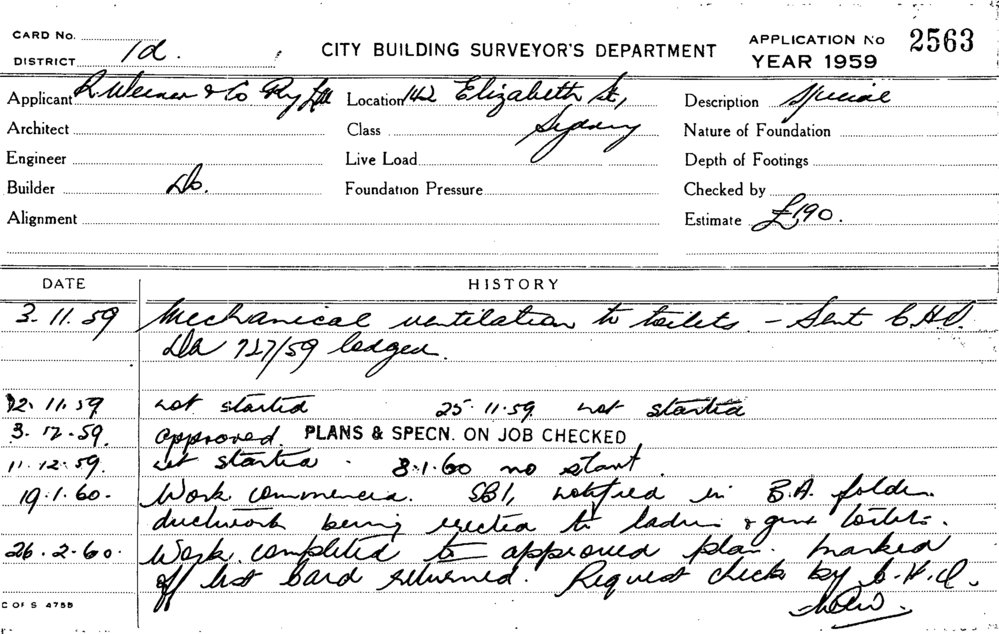 CARD No.
DISTRICT 1d.
CITY BUILDING SURVEYOR'S DEPARTMENT
APPLICATION No 2563
YEAR 1959
Applicant R. Weiner & Co Pty Ltd Location 142 Elizabeth St, Description Special
Architect Class Sydney Nature of Foundation
Engineer Live Load Depth of Footings
Builder Do. Foundation Pressure Checked by
Alignment Estimate £190.
DATE HISTORY
3.11.59 Mechanical ventilation to toilets. - Sent C.H.I.
DA 727/59 lodged.
12.11.59 not started 25.11.59 not started
3.12.59. approved. PLANS & SPECN. ON JOB CHECKED
11.12.59. not started. 8.1.60 no start.
19.1.60. Work commenced. notified in B.A. folder.
ductwork being erected to ladies & gents toilets.
26.2.60. Work completed to approved plan. Marked
off list card returned. Request check by C.H.I.
C OF S 475B